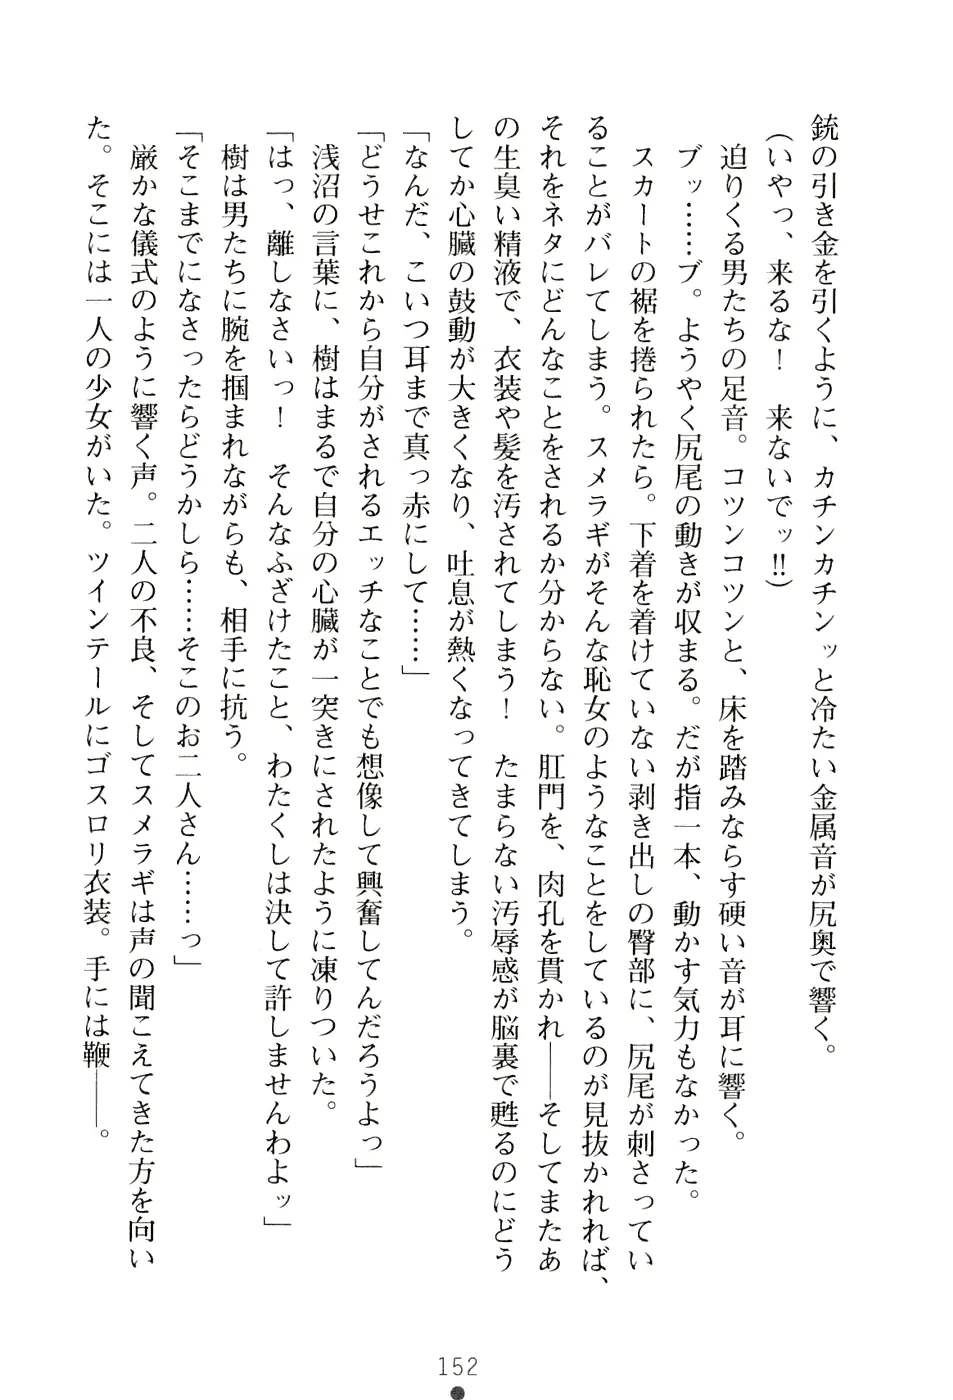 銃の引き金を引くように、カチンカチンッと冷たい金属音が尻奥で響く。
（いやっ、来るな！　来ないでッ!!）
迫りくる男たちの足音。コツンコツンと、床を踏みならす硬い音が耳に響く。
ブッ……ブ。ようやく尻尾の動きが収まる。だが指一本、動かす気力もなかった。
スカートの裾を捲られたら。下着を着けていない剥き出しの臀部に、尻尾が刺さってい
ることがバレてしまう。スメラギがそんな恥女のようなことをしているのが見抜かれれば、
それをネタにどんなことをされるか分からない。肛門を、肉孔を貫かれ――そしてまたあ
の生臭い精液で、衣装や髪を汚されてしまう！　たまらない汚辱感が脳裏で甦るのにどう
してか心臓の鼓動が大きくなり、吐息が熱くなってきてしまう。
「なんだ、こいつ耳まで真っ赤にして……」
「どうせこれから自分がされるエッチなことでも想像して興奮してんだろうよっ」
浅沼の言葉に、樹はまるで自分の心臓が一突きにされたように凍りついた。
「はっ、離しなさいっ！　そんなふざけたこと、わたくしは決して許しませんわよッ」
樹は男たちに腕を掴まれながらも、相手に抗う。
「そこまでになさったらどうかしら……そこのお二人さん……っ」
厳かな儀式のように響く声。二人の不良、そしてスメラギは声の聞こえてきた方を向い
た。そこには一人の少女がいた。ツインテールにゴスロリ衣装。手には鞭――。
152